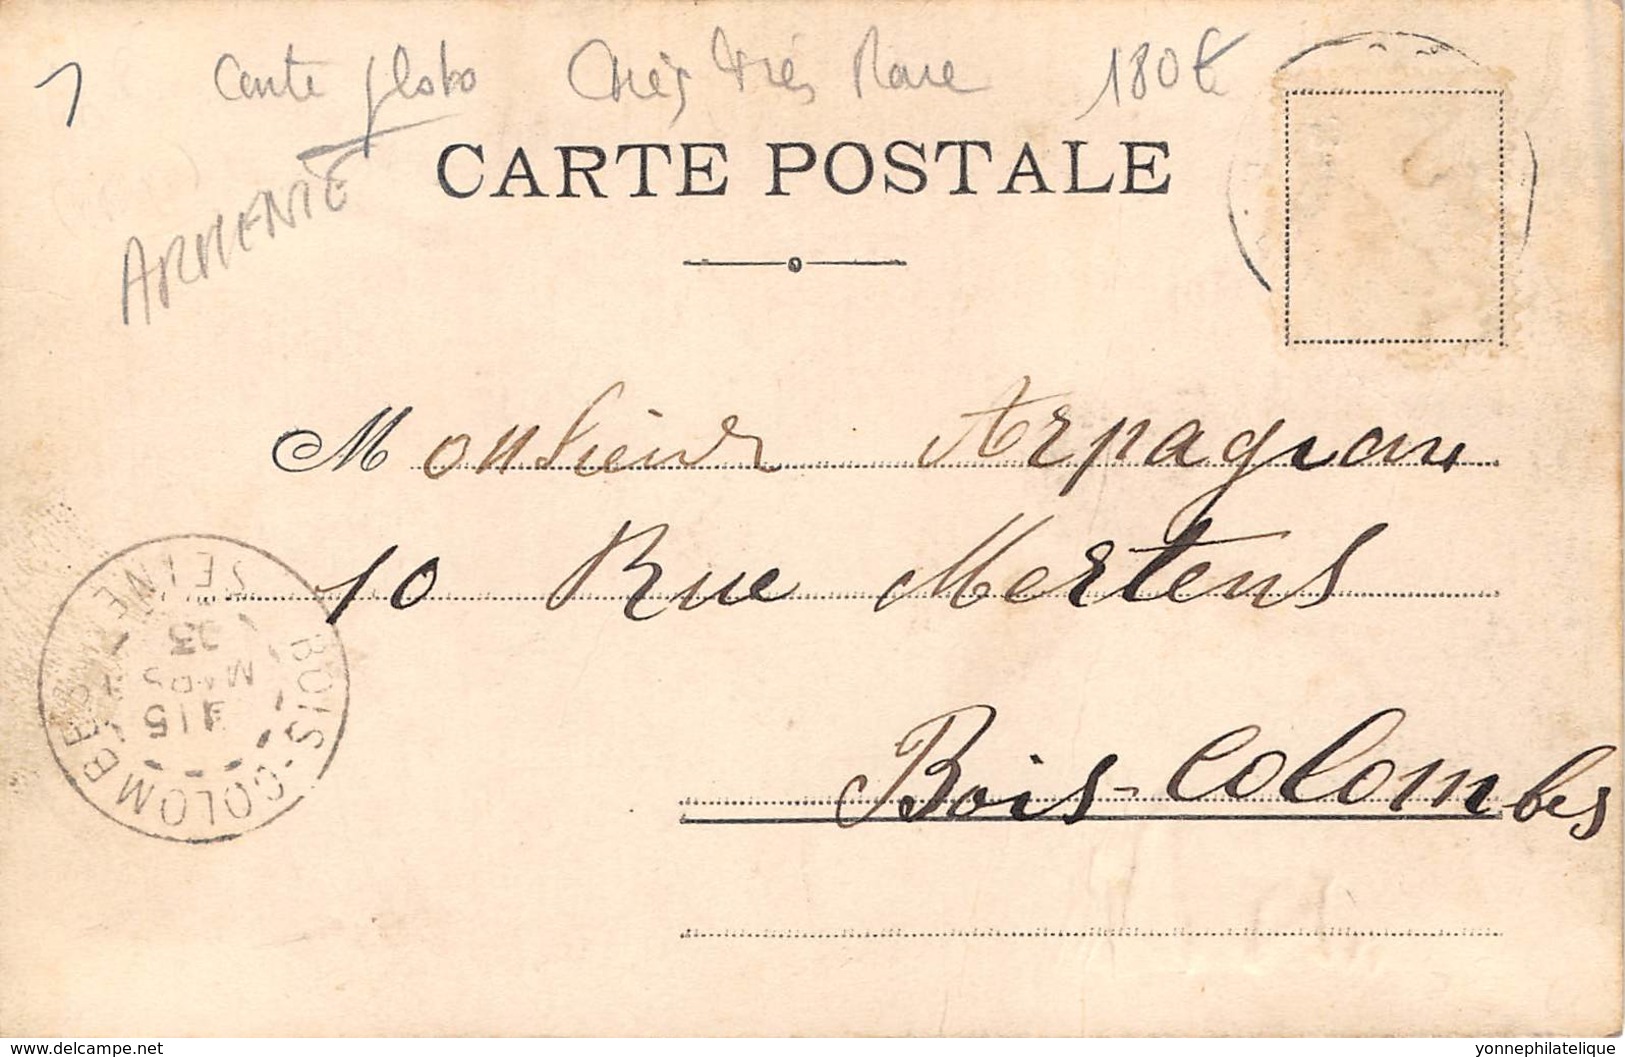 Carte photo très très Rare 180€
ARMENIE
CARTE POSTALE
Monsieur Arpagian
10 Rue Mertens
Bois-Colombes
BOIS-COLOMBES
SEINE
15
MARS
03
www.delcampe.net
yonnephilatelique